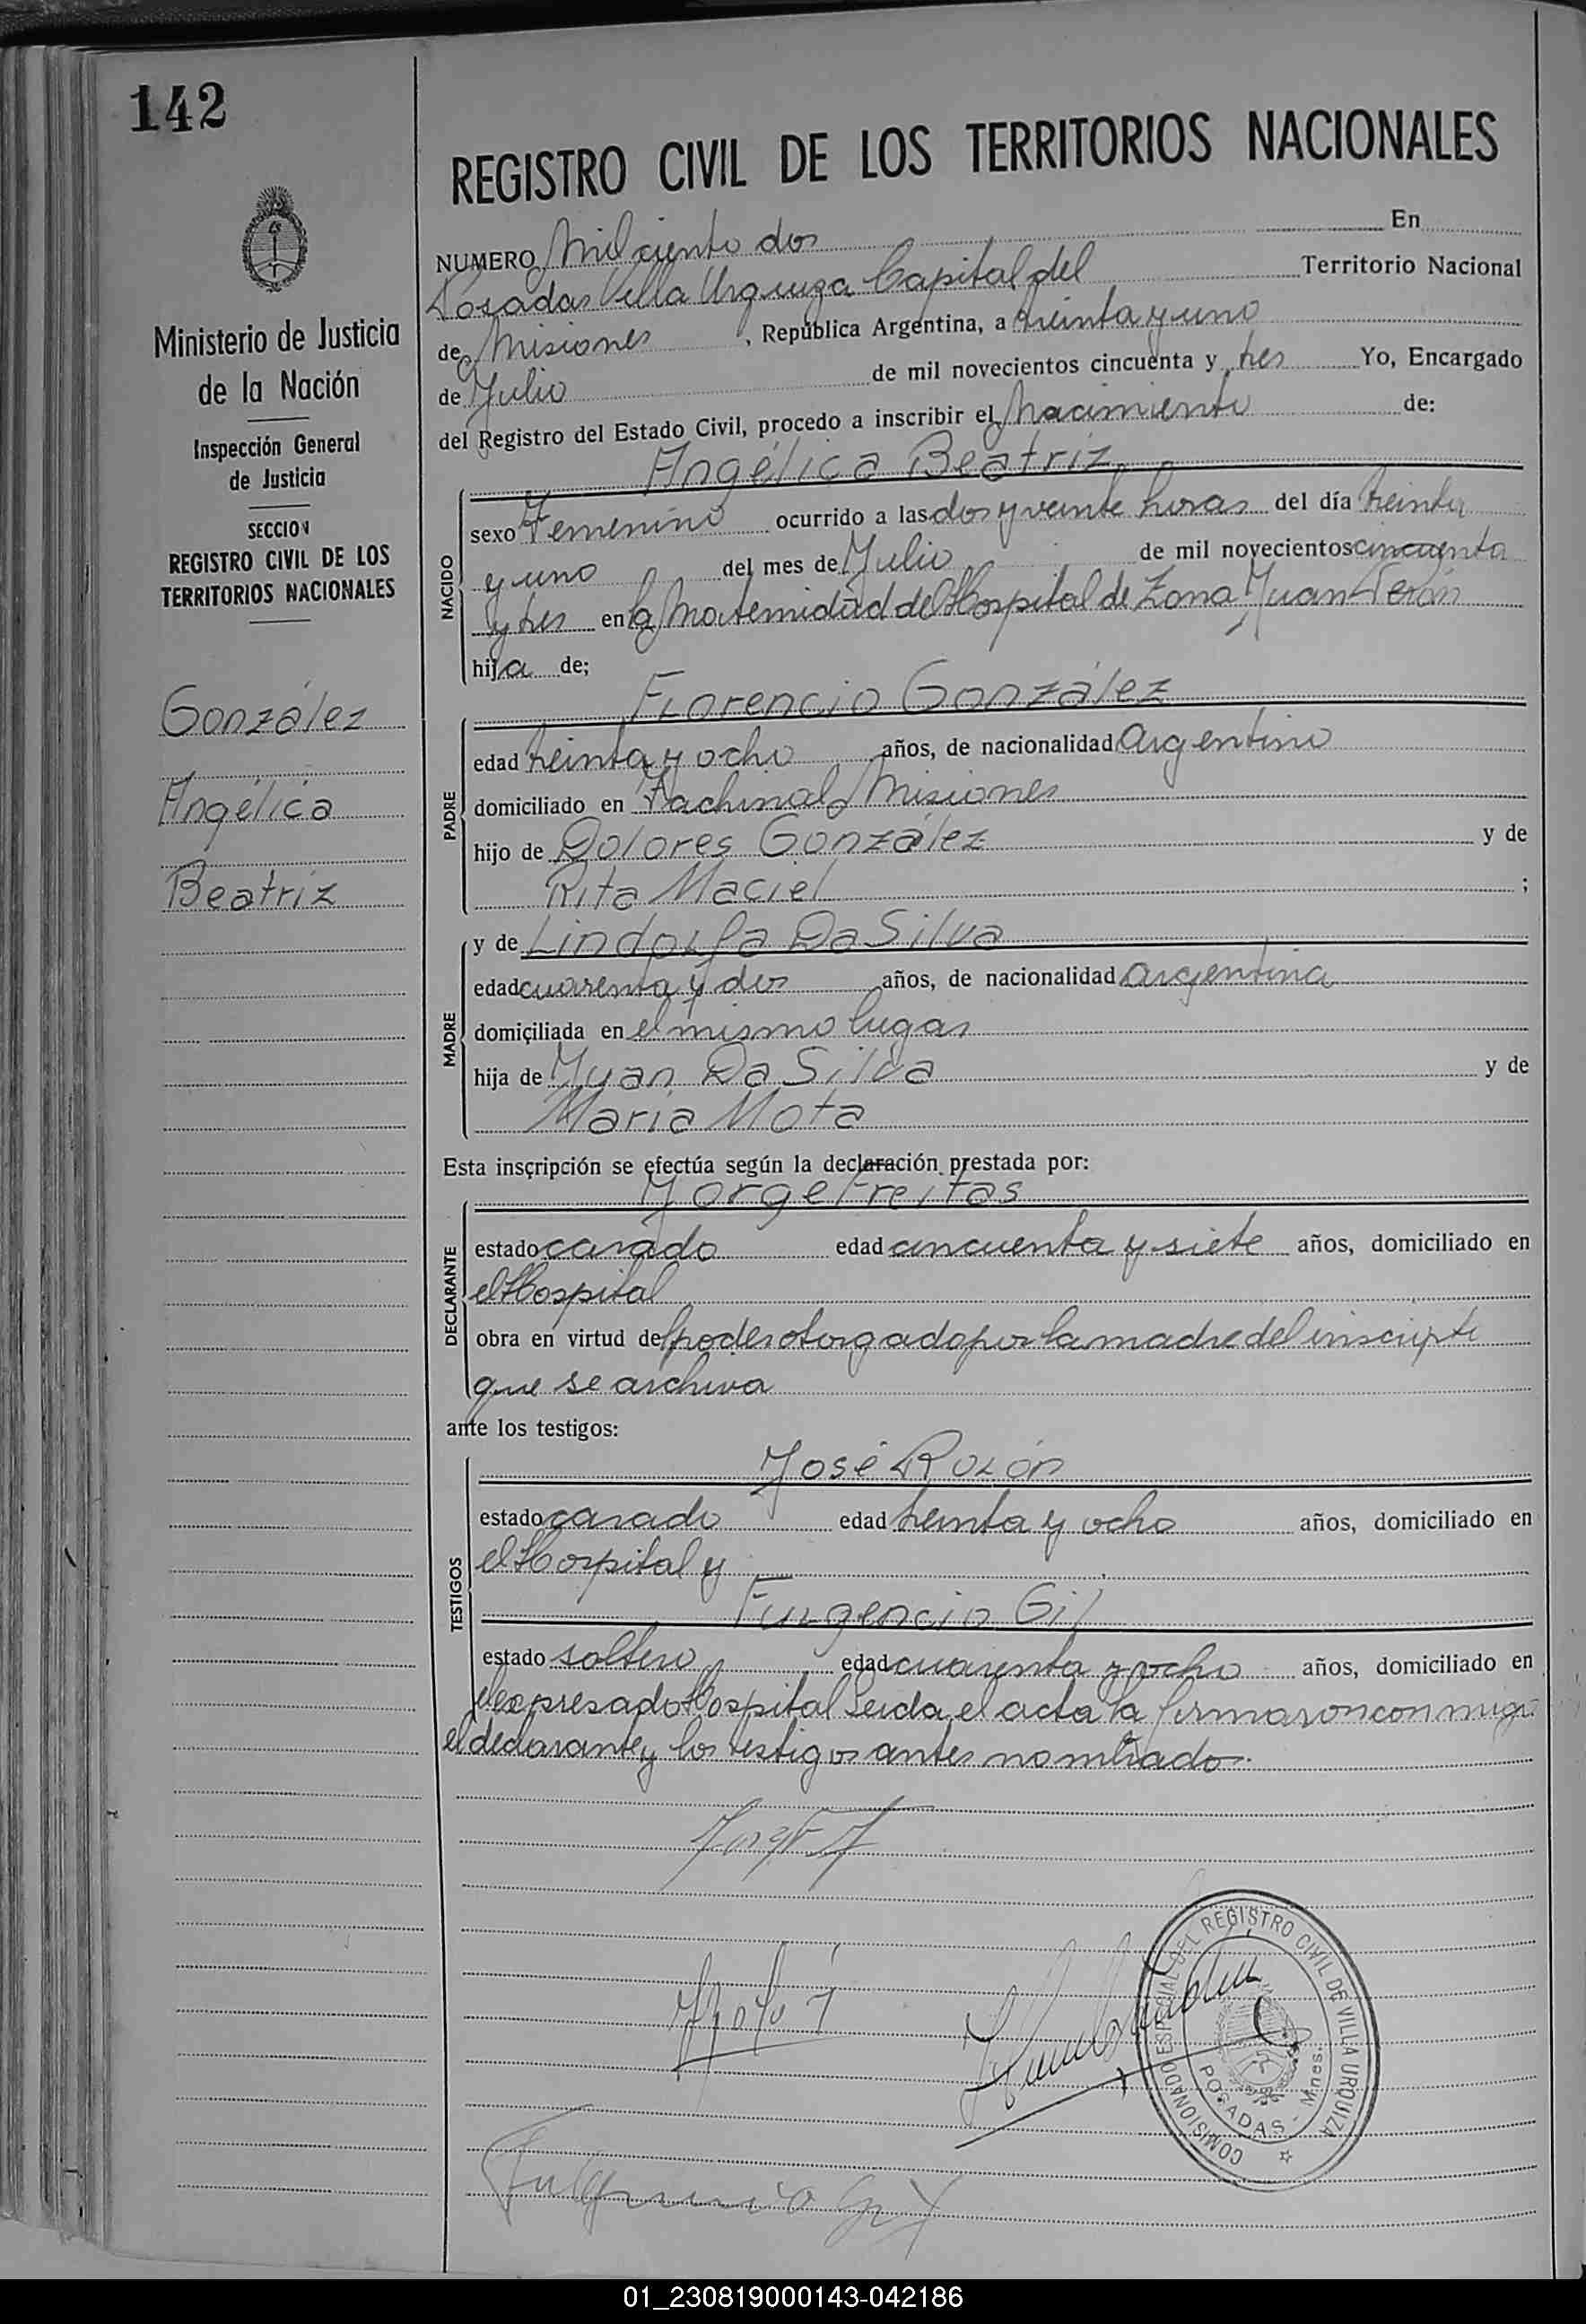 142
REGISTRO CIVIL DE LOS TERRITORIOS NACIONALES
Ministerio de Justicia
de la Nación
Inspección General
de Justicia
SECCION
REGISTRO CIVIL DE LOS
TERRITORIOS NACIONALES
González
Angélica
Beatriz
NUMERO Mil ciento dos En
Posadas Villa Urquiza Capital del Territorio Nacional
de Misiones, República Argentina, a treinta y uno
de Julio de mil novecientos cincuenta y tres Yo, Encargado
del Registro del Estado Civil, procedo a inscribir el Nacimiento de:
Angélica Beatriz
NACIDO
sexo Femenino ocurrido a las dos y veinte horas del día treinta
y uno del mes de Julio de mil novecientos cincuenta
y tres en la Maternidad del Hospital de Zona Juan Terán
hija de;
Florencio González
PADRE
edad treinta y ocho años, de nacionalidad Argentino
domiciliado en Fachinal Misiones
hijo de Dolores González y de
Rita Maciel ;
y de Lindolfa Da Silva
MADRE
edad cuarenta y dos años, de nacionalidad argentina
domiciliada en el mismo lugar
hija de Juan Da Silva y de
María Mota
Esta inscripción se efectúa según la declaración prestada por:
Jorge Freitas
DECLARANTE
estado casado edad cincuenta y siete años, domiciliado en
el Hospital
obra en virtud del poder otorgado por la madre del inscripto
que se archiva
ante los testigos:
José Rolón
TESTIGOS
estado casado edad treinta y ocho años, domiciliado en
el Hospital y
Fulgencio Gil
estado soltero edad cuarenta y ocho años, domiciliado en
el expresado Hospital Leida el acta la firmaron conmigo
el declarante y los testigos antes nombrado.
COMISIONADO ESPECIAL DEL REGISTRO CIVIL DE VILLA URQUIZA
POSADAS - Mnes.
Fulgencio Gil
01_230819000143-042186